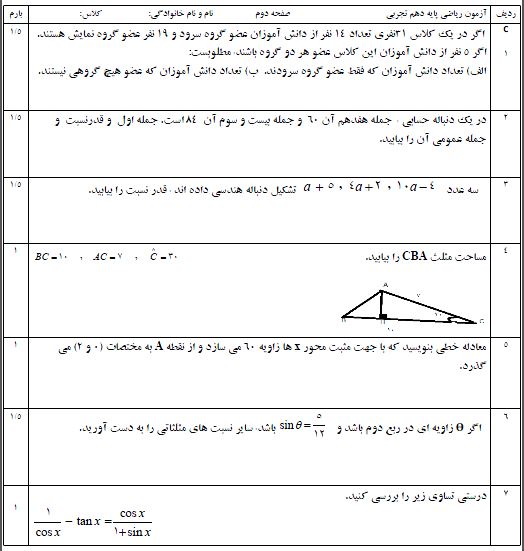 ردیف آزمون ریاضی پایه دهم تجربی صفحه دوم نام و نام خانوادگی: کلاس: بارم
C
۱
اگر در یک کلاس ۳۱نفری تعداد ۱۴ نفر از دانش آموزان عضو گروه سرود و ۱۹ نفر عضو گروه نمایش هستند. ۱/۵
اگر ۵ نفر از دانش آموزان این کلاس عضو هر دو گروه باشند، مطلوبست:
الف) تعداد دانش آموزان که فقط عضو گروه سرودند. ب) تعداد دانش آموزان که عضو هیچ گروهی نیستند.
۲ در یک دنباله حسابی ، جمله هفدهم آن ۶۰ و جمله بیست و سوم آن ۸۴است. جمله اول و قدرنسبت و ۱/۵
جمله عمومی آن را بیابید.
۳ سه عدد a + ۵ , ۴a + ۲ , ۱۰a − ۴ تشکیل دنباله هندسی داده اند ، قدر نسبت را بیابید. ۱/۵
۴ مساحت مثلث CBA را بیابید. BC = ۱۰ , AC = ۷ , Ĉ = ۳۰ ۱
A
۷
B H C
۱۰
۵ معادله خطی بنویسید که با جهت مثبت محور x ها زاویه ۶۰ می سازد و از نقطه A به مختصات (۰ و ۲) می ۱
گذرد.
۶ اگر θ زاویه ای در ربع دوم باشد و sin θ = ۵/۱۲ باشد، سایر نسبت های مثلثاتی را به دست آورید. ۱/۵
۷ درستی تساوی زیر را بررسی کنید. ۱
۱/cos x − tan x = cos x/۱+sin x